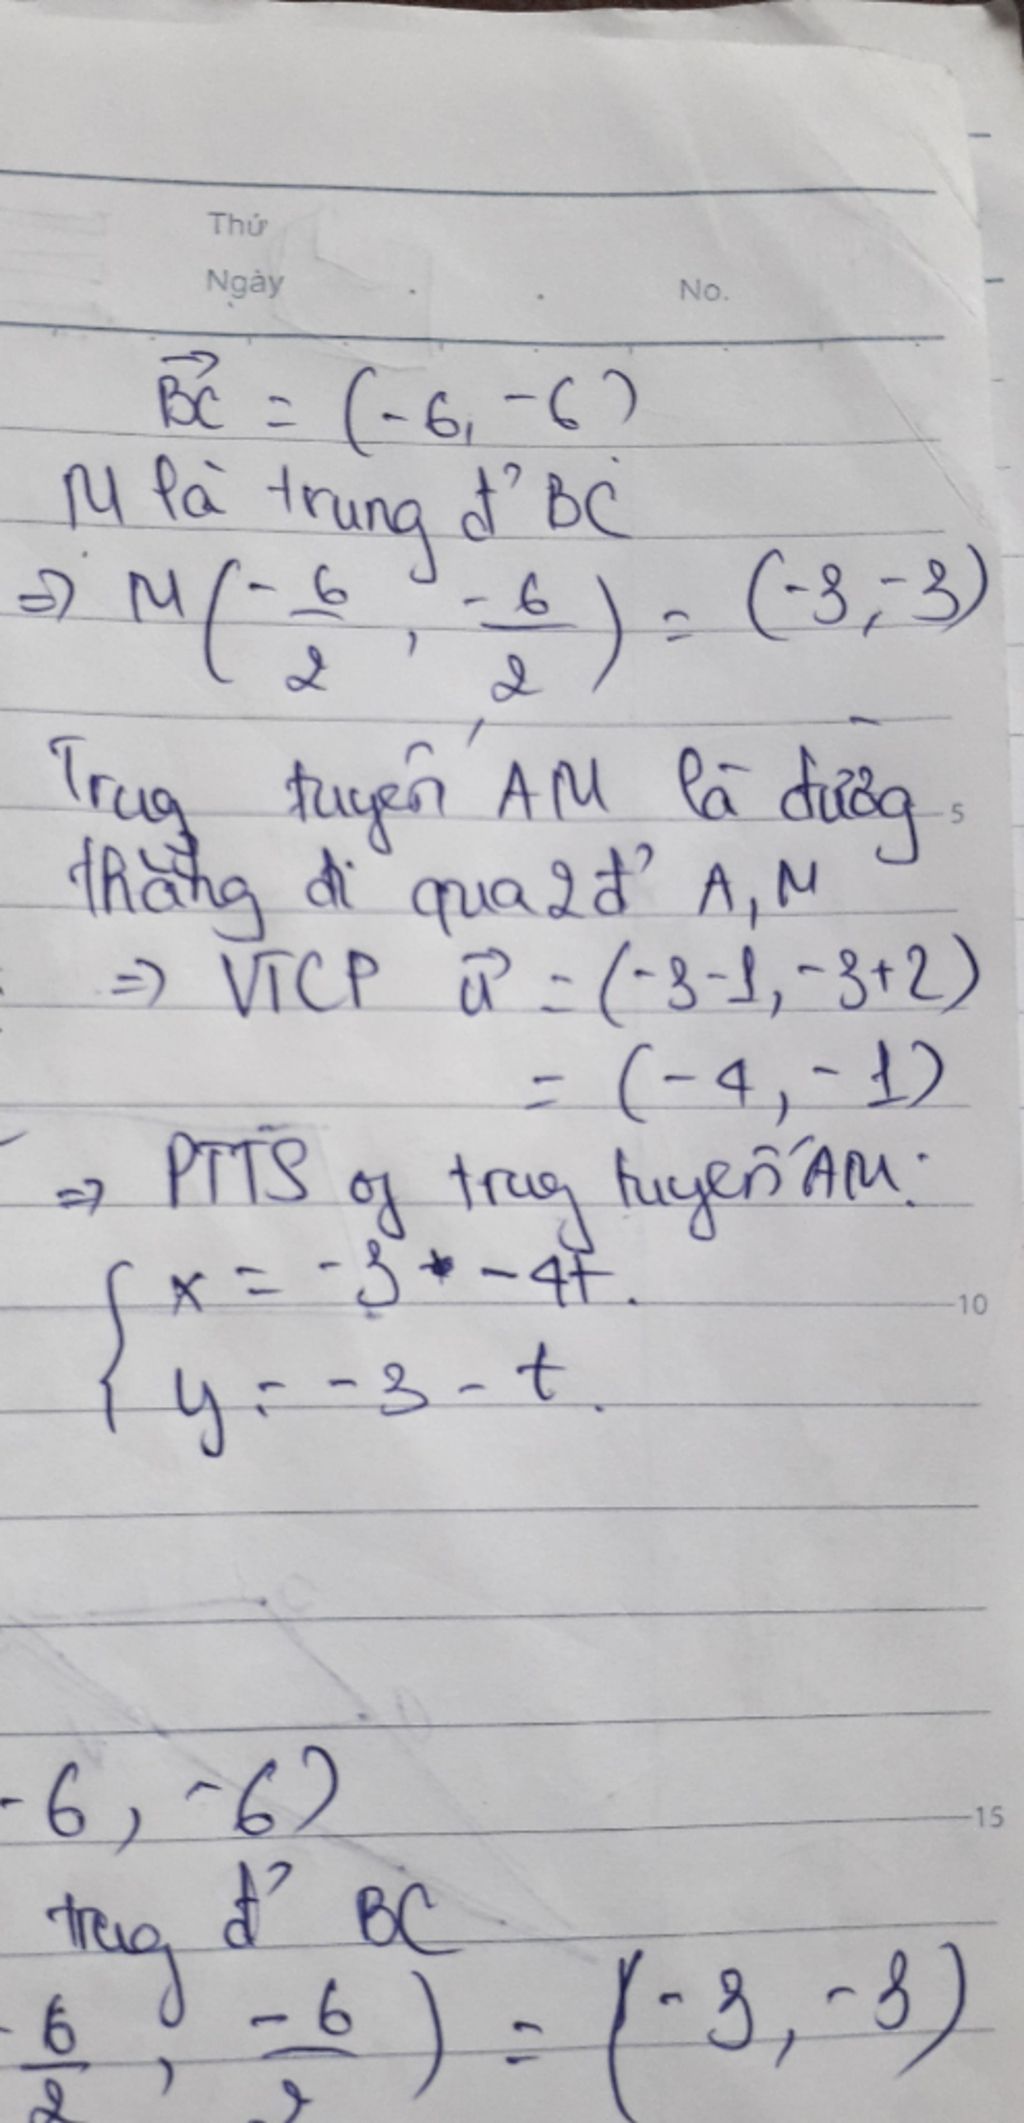 Thứ
Ngày . . No.
BC⃗ = (-6, -6)
M là trung đ' BC
=> M(-6/2, -6/2) = (-3, -3)
Trug tuyến AM là đường 5
thẳng đi qua 2 đ' A, M
=> VTCP u⃗ = (-3-1, -3+2)
= (-4, -1)
=> PTTS of trug tuyến AM:
{ x = -3 - 4t. 10
y = -3 - t.
-6, -6) 15
trug đ' BC
-6/2, -6/2) = (-3, -3)